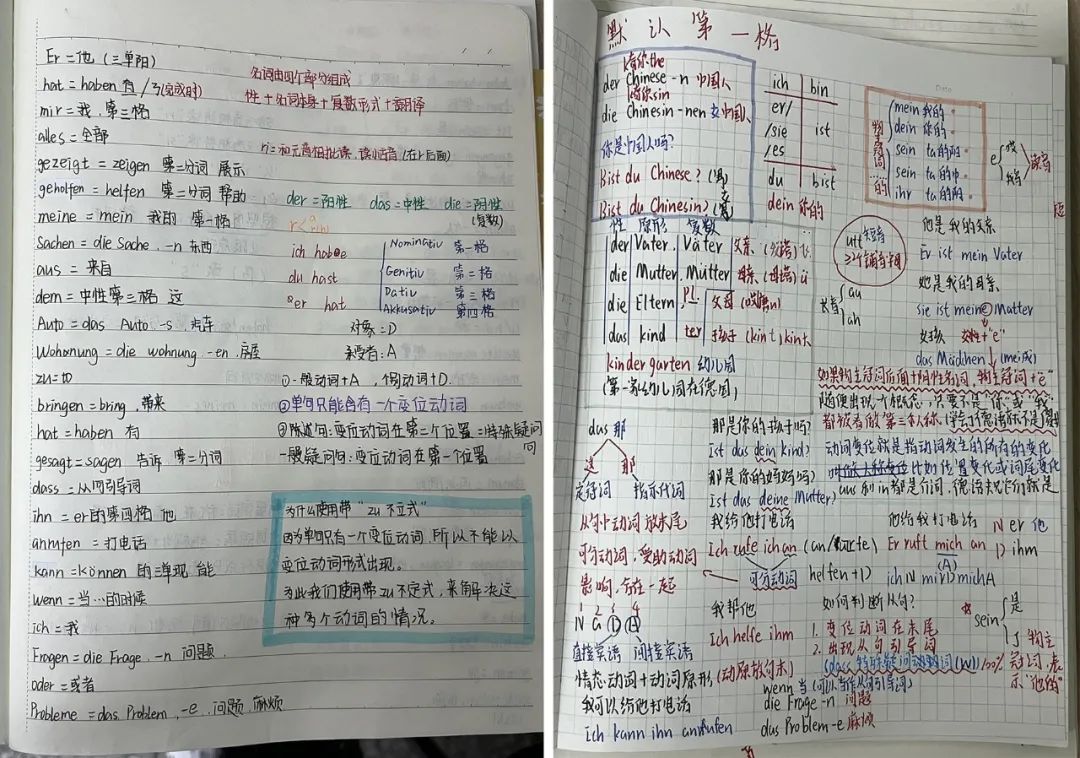 Er = 他 (三单阳)
hat = haben 有 / 了(完成时)
mir = 我. 第三格
alles = 全部
gezeigt = zeigen 第二分词 展示
geholfen = helfen 第二分词 帮助
meine = mein 我的 第一格
Sachen = die Sache. -n 东西
aus = 来自
dem = 中性第三格 这
Auto = das Auto. -s. 汽车
Wohnung = die wohnung -en. 房屋
zu = to
bringen = bring. 带来
hat = haben 有
gesagt = sagen 告诉 第二分词
dass = 从句引导词
ihn = er的第四格 他
anrufen = 打电话
kann = können 的单现 能
wenn = 当…的时候
ich = 我
Fragen = die Frage. -n 问题.
oder = 或者
Probleme = das Problem. -e. 问题. 麻烦
名词由四个部分组成
性 + 名词本身 + 复数形式 + 翻译
der = 阳性 das = 中性 die = 阴性
(复数)
ich habe
du hast
er hat
Nominativ 第一格
Genitiv 第二格
Dativ 第三格
Akkusativ 第四格
对象:D
承受者:A
① 一般动词+A , 个别动词+D.
②单句只能含有一个变位动词
③陈述句:变位动词在第二个位置 = 特殊疑问句
一般疑问句:变位动词在第一个位置
为什么使用带 "zu 不定式"
因为单句只有一个变位动词. 所以不能以
变位动词形式出现。
为此我们使用带 zu 不定式, 来解决这
种多个动词的情况。
默认第一格
der Chinese -n 中国人
die Chinesin -nen 女中国人
你是中国人吗?
Bist du Chinese? (男)
Bist du Chinesin?
ich bin
er/
/sie ist
/es
du bist
dein 你的
物主冠词
…的
mein 我的
dein 你的
sein ta的
sein ta的
ihr ta的
性 原形 复数
der Vater. Väter 父亲.
die Mutter. Mütter 母亲.
die Eltern. Pl. 父母
das kind ter 孩子
kindergarten 幼儿园
(第一家幼儿园在德国)
他是我的父亲
Er ist mein Vater
她是我的母亲
sie ist meine Mutter
女孩 女性+"e"
das Mädchen
如果物主冠词后面+阴性名词, 物主冠词+"e"
das 那
这 那
定冠词 指示代词
那是你的孩子吗?
Ist das dein kind?
那是你的妈妈吗?
Ist das deine Mutter?
动词变位就是指动词发生的所有的变化
比如位置变化或词尾变化
aus 和 in 都是介词,
从句中动词放末尾
可分动词, 受助动词
影响, 存在一起
1 2 3 4
N G D A
直接宾语 间接宾语
我给他打电话
Ich rufe ich an
可分动词
他给我打电话
Er ruft mich an
(A)
N er 他
D ihm
helfen + D
ich N mir D mich A
我帮他
Ich helfe ihm
如何判断从句?
1. 变位动词在末尾
2. 出现从句引导词
sein
是
情态动词 + 动词原形 (动原放句末)
我可以给他打电话
Ich kann ihn anrufen
wenn 当 (可以当作从句引导词)
die Frage -n 问题
das Problem -e 麻烦